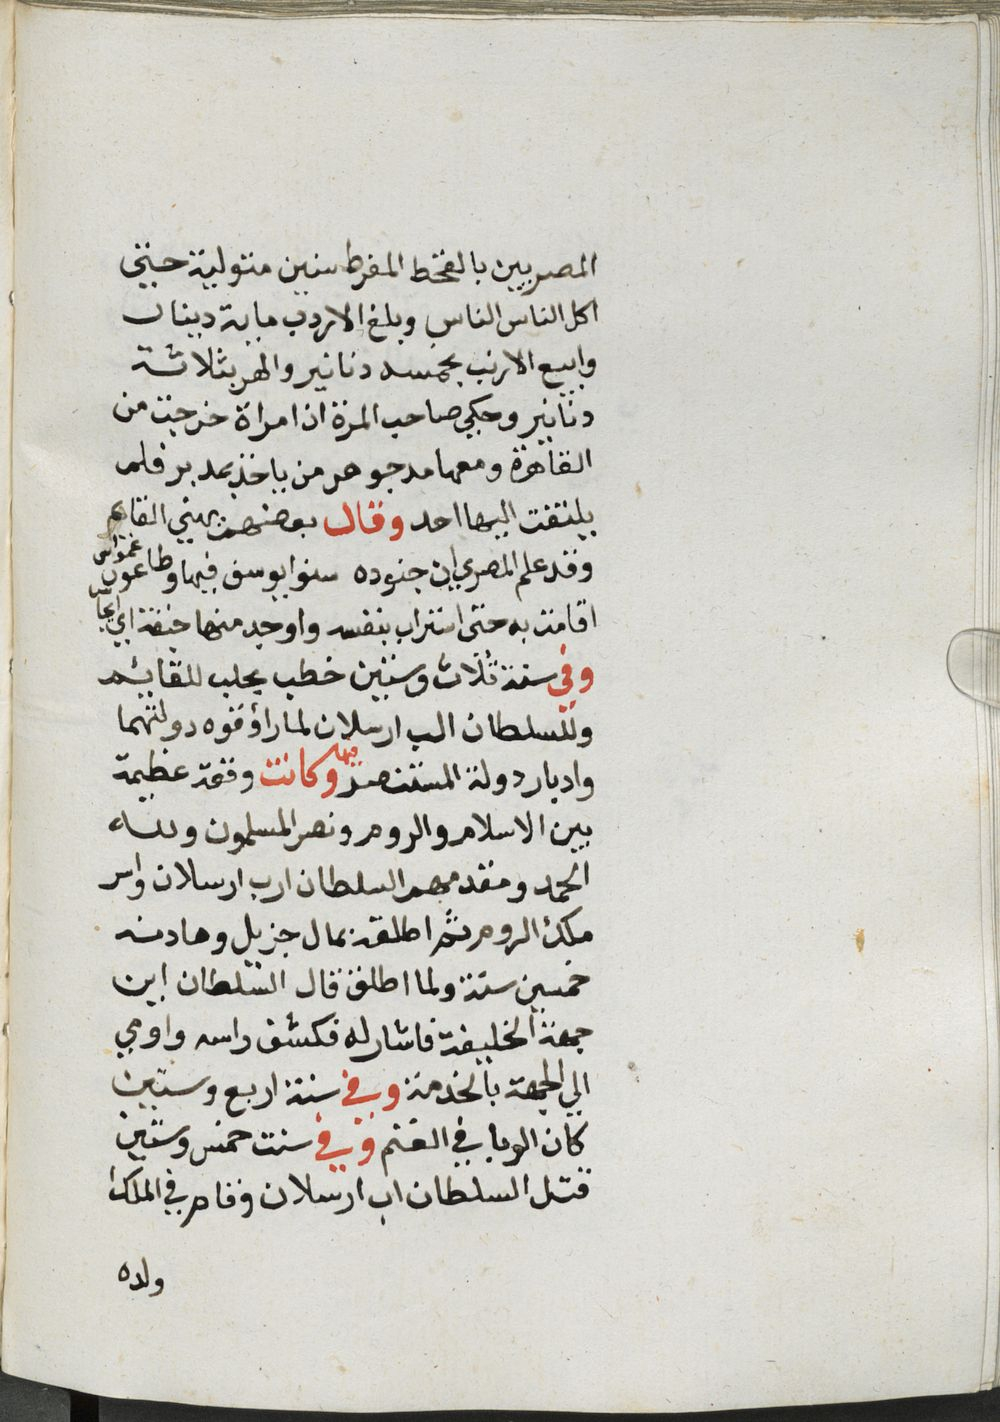 المصريين بالقحط المفرط سنين متولية حتي
اكل الناس الناس وبلغ الاردب ماية دينار
وابيع الارنب بخمسه دنانير والهر بثلاثة
دنانير وحكي صاحب المرة ان امراة خرجت من
القاهرة ومعها مد جوهر من ياخذ بمد بر فلم
يلتفت اليها احد وقال بعضهم يهني القايم
وقد علم المصري ان جنوده سنوا يوسف فيها وطاعون عمواس
اقامت به حتى استراب بنفسه واوجد منها خيفة اي ايجاس
وفي سنة ثلاث وستين خطب بحلب للقايم
وللسلطان الب ارسلان لما راو قوه دولتهما
وادبار دولة المستنصر وكانت فيها وقعة عظيمة
بين الاسلام والروم ونصر المسلمون ولله
الحمد ومقدمهم السلطان ارب ارسلان واسر
ملك الروم ثم اطلقه بمال جزيل وهادنه
خمسين سنة ولما اطلق قال السلطان اين
جهة الخليفة فاشار له فكشف راسه واومي
الي الجهة بالخدمة وفي سنة اربع وستين
كان الوبا في الغنم وفي سنت خمس وستين
قتل السلطان اب ارسلان وقام في الملك
ولده